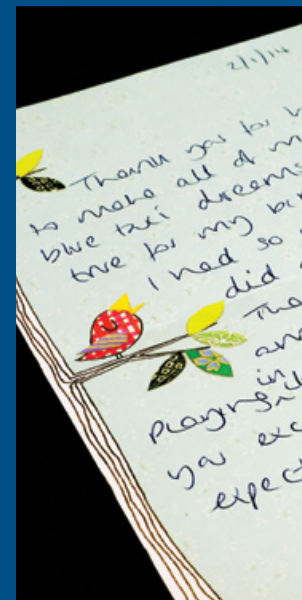 2/1/14
Thank you for
to make all of
blue taxi dreams
true for my
I had so
did
The
and
in
playing
you exc
expec